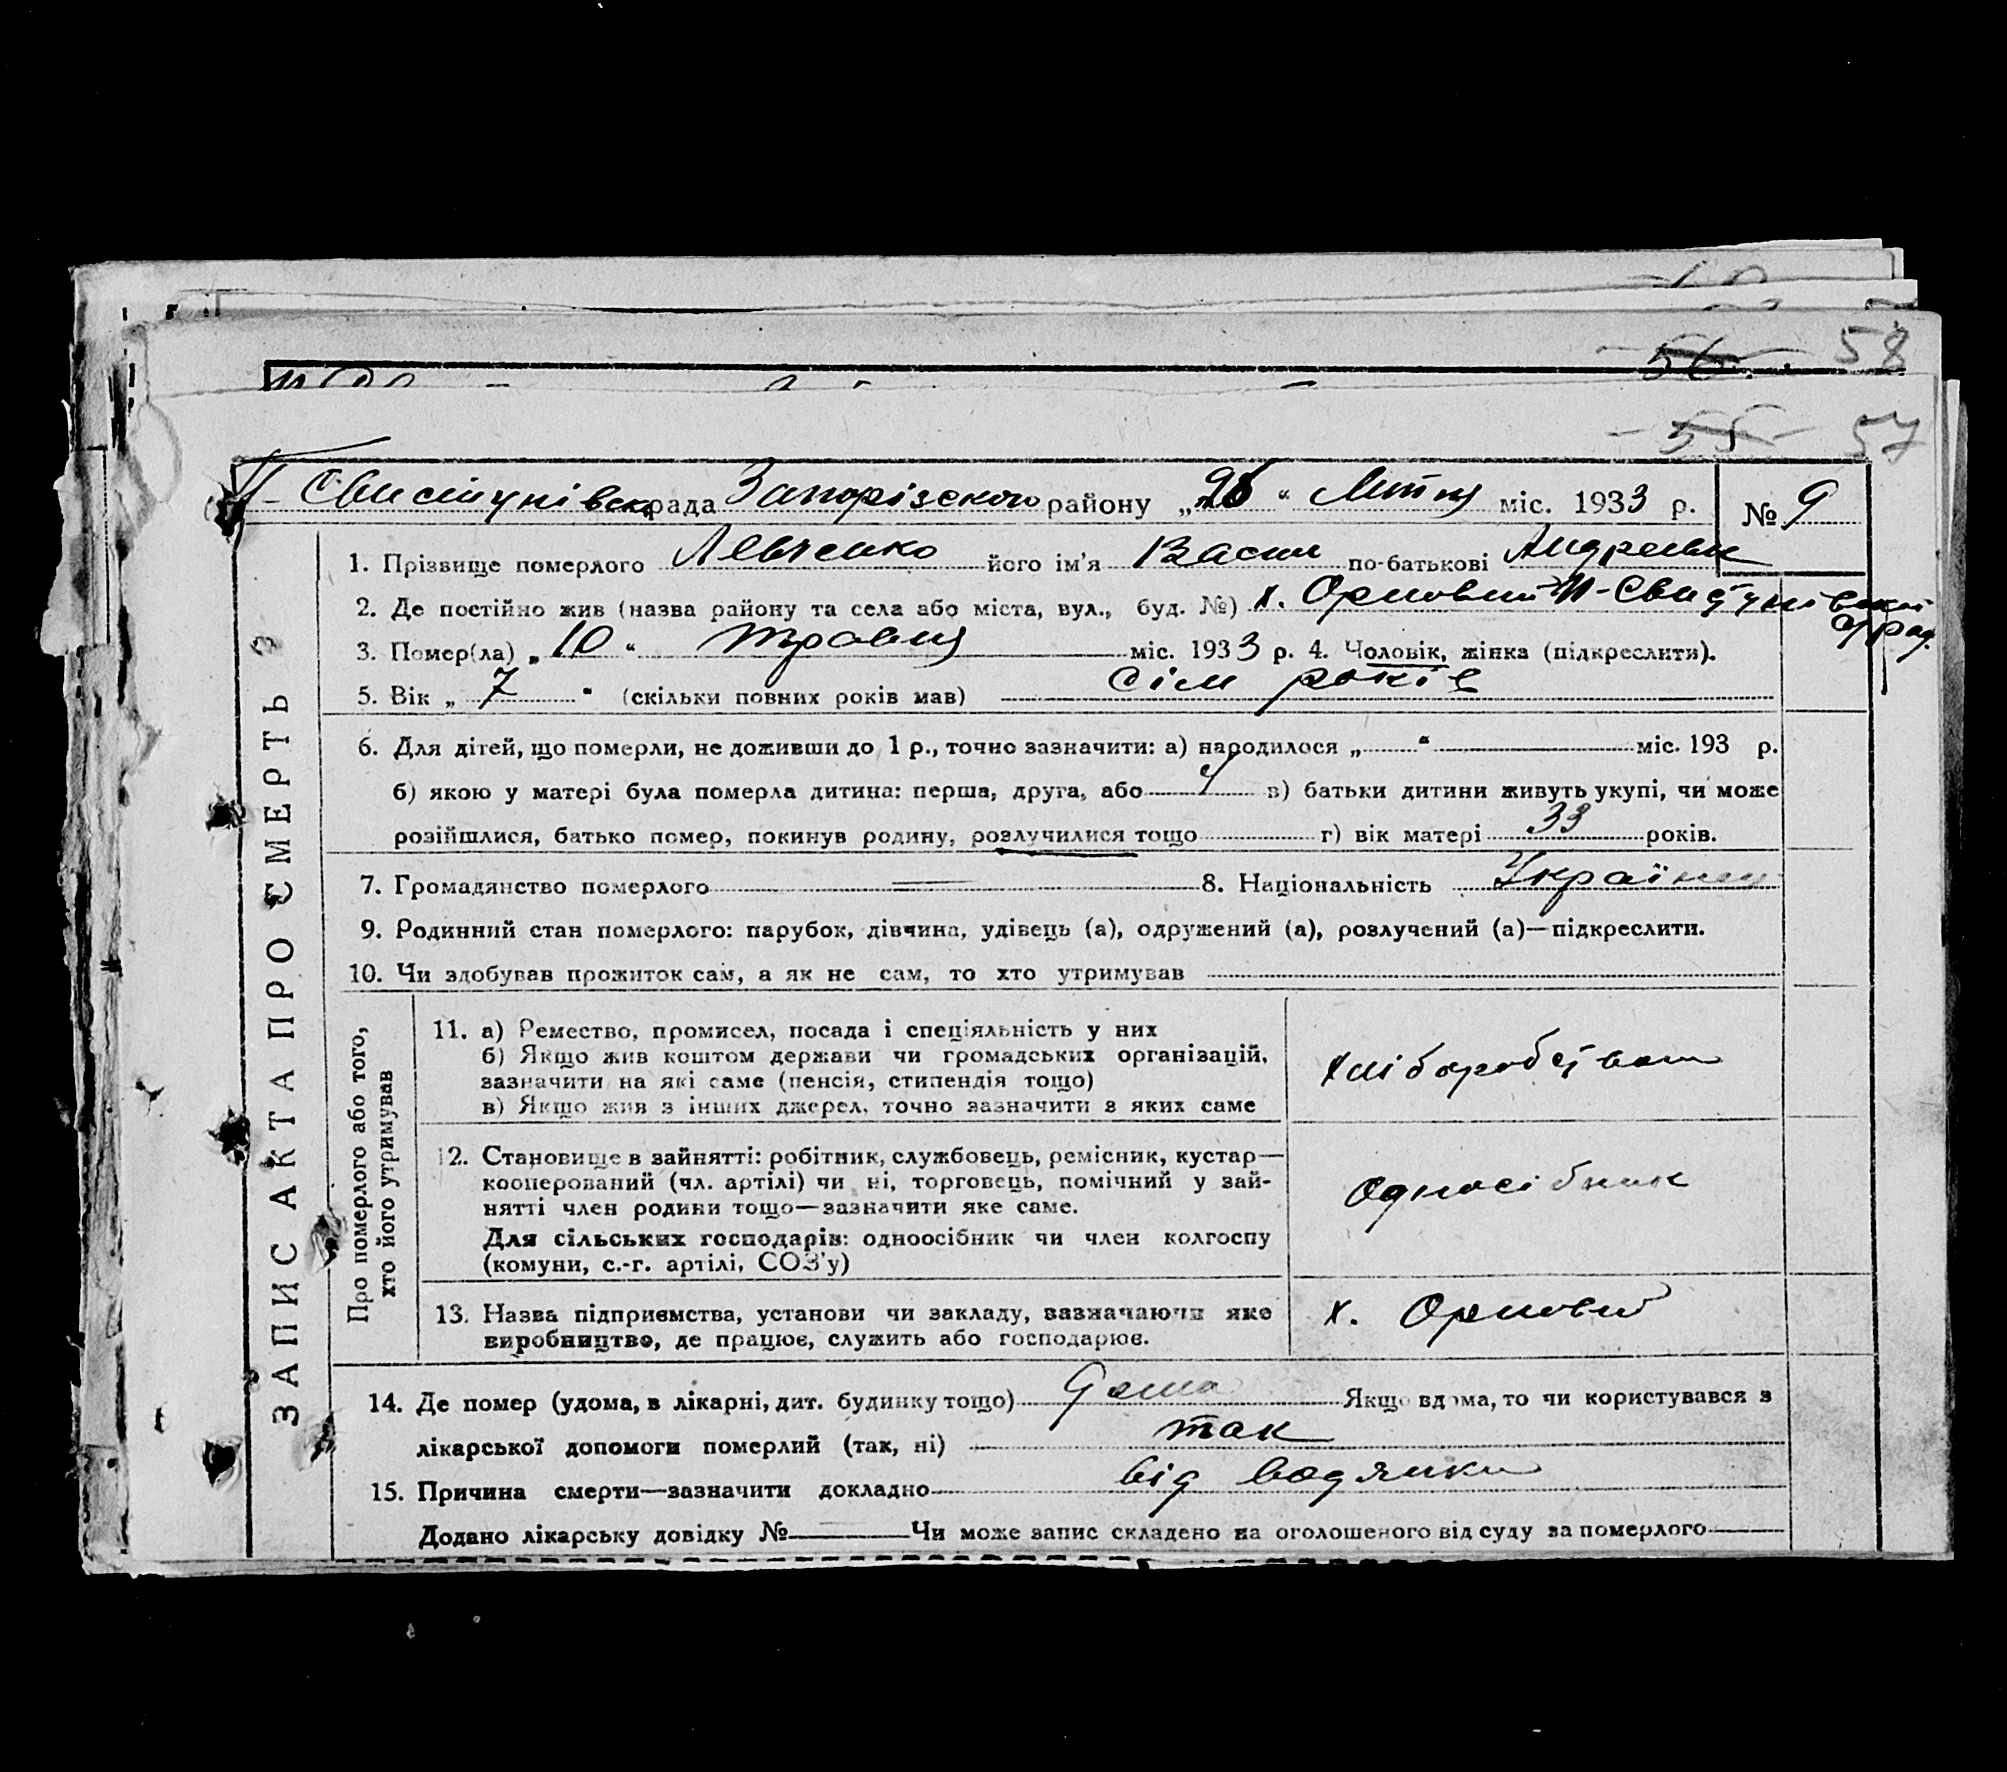 56. 58
55 57
П-Свистунівськ рада Запорізского району „26“ Липня міс. 1933 р. № 9
ЗАПИС АКТА ПРО СМЕРТЬ
1. Прізвище померлого Левченко його ім'я Васил по-батькові Андреевич
2. Де постійно жив (назва району та села або міста, вул., буд. №) х. Орловий П-Свистунівскої с/рад.
3. Помер(ла) „10“ травня міс. 1933 р. 4. Чоловік, жінка (підкреслити).
5. Вік „7“ (скільки повних років мав) сім років
6. Для дітей, що померли, не доживши до 1 р., точно зазначити: а) народилося „ “ міс. 193 р.
б) якою у матері була померла дитина: перша, друга, або 4 в) батьки дитини живуть укупі, чи може
розійшлися, батько помер, покинув родину, розлучилися тощо г) вік матері 33 років.
7. Громадянство померлого — 8. Національність Українец
9. Родинний стан померлого: парубок, дівчина, удівець (а), одружений (а), розлучений (а)—підкреслити.
10. Чи здобував прожиток сам, а як не сам, то хто утримував
Про померлого або того,
хто його утримував
11. а) Ремество, промисел, посада і спеціяльність у них
б) Якщо жив коштом держави чи громадських організацій,
зазначити на які саме (пенсія, стипендія тощо)
в) Якщо жив з інших джерел, точно зазначити з яких саме
хліборобством
12. Становище в зайнятті: робітник, службовець, ремісник, кустар—
кооперований (чл. артілі) чи ні, торговець, помічний у зай-
нятті член родини тощо—зазначити яке саме.
Для сільських господарів: одноосібник чи член колгоспу
(комуни, с.-г. артілі, СОЗ'у)
Односібник
13. Назва підприємства, установи чи закладу, зазначаючи яке
виробництво, де працює, служить або господарює.
х. Орловий
14. Де помер (удома, в лікарні, дит. будинку тощо) дома Якщо вдома, то чи користувався з
лікарської допомоги померлий (так, ні) так
15. Причина смерти—зазначити докладно від водянки
Додано лікарську довідку № — Чи може запис складено на оголошеного від суду за померлого